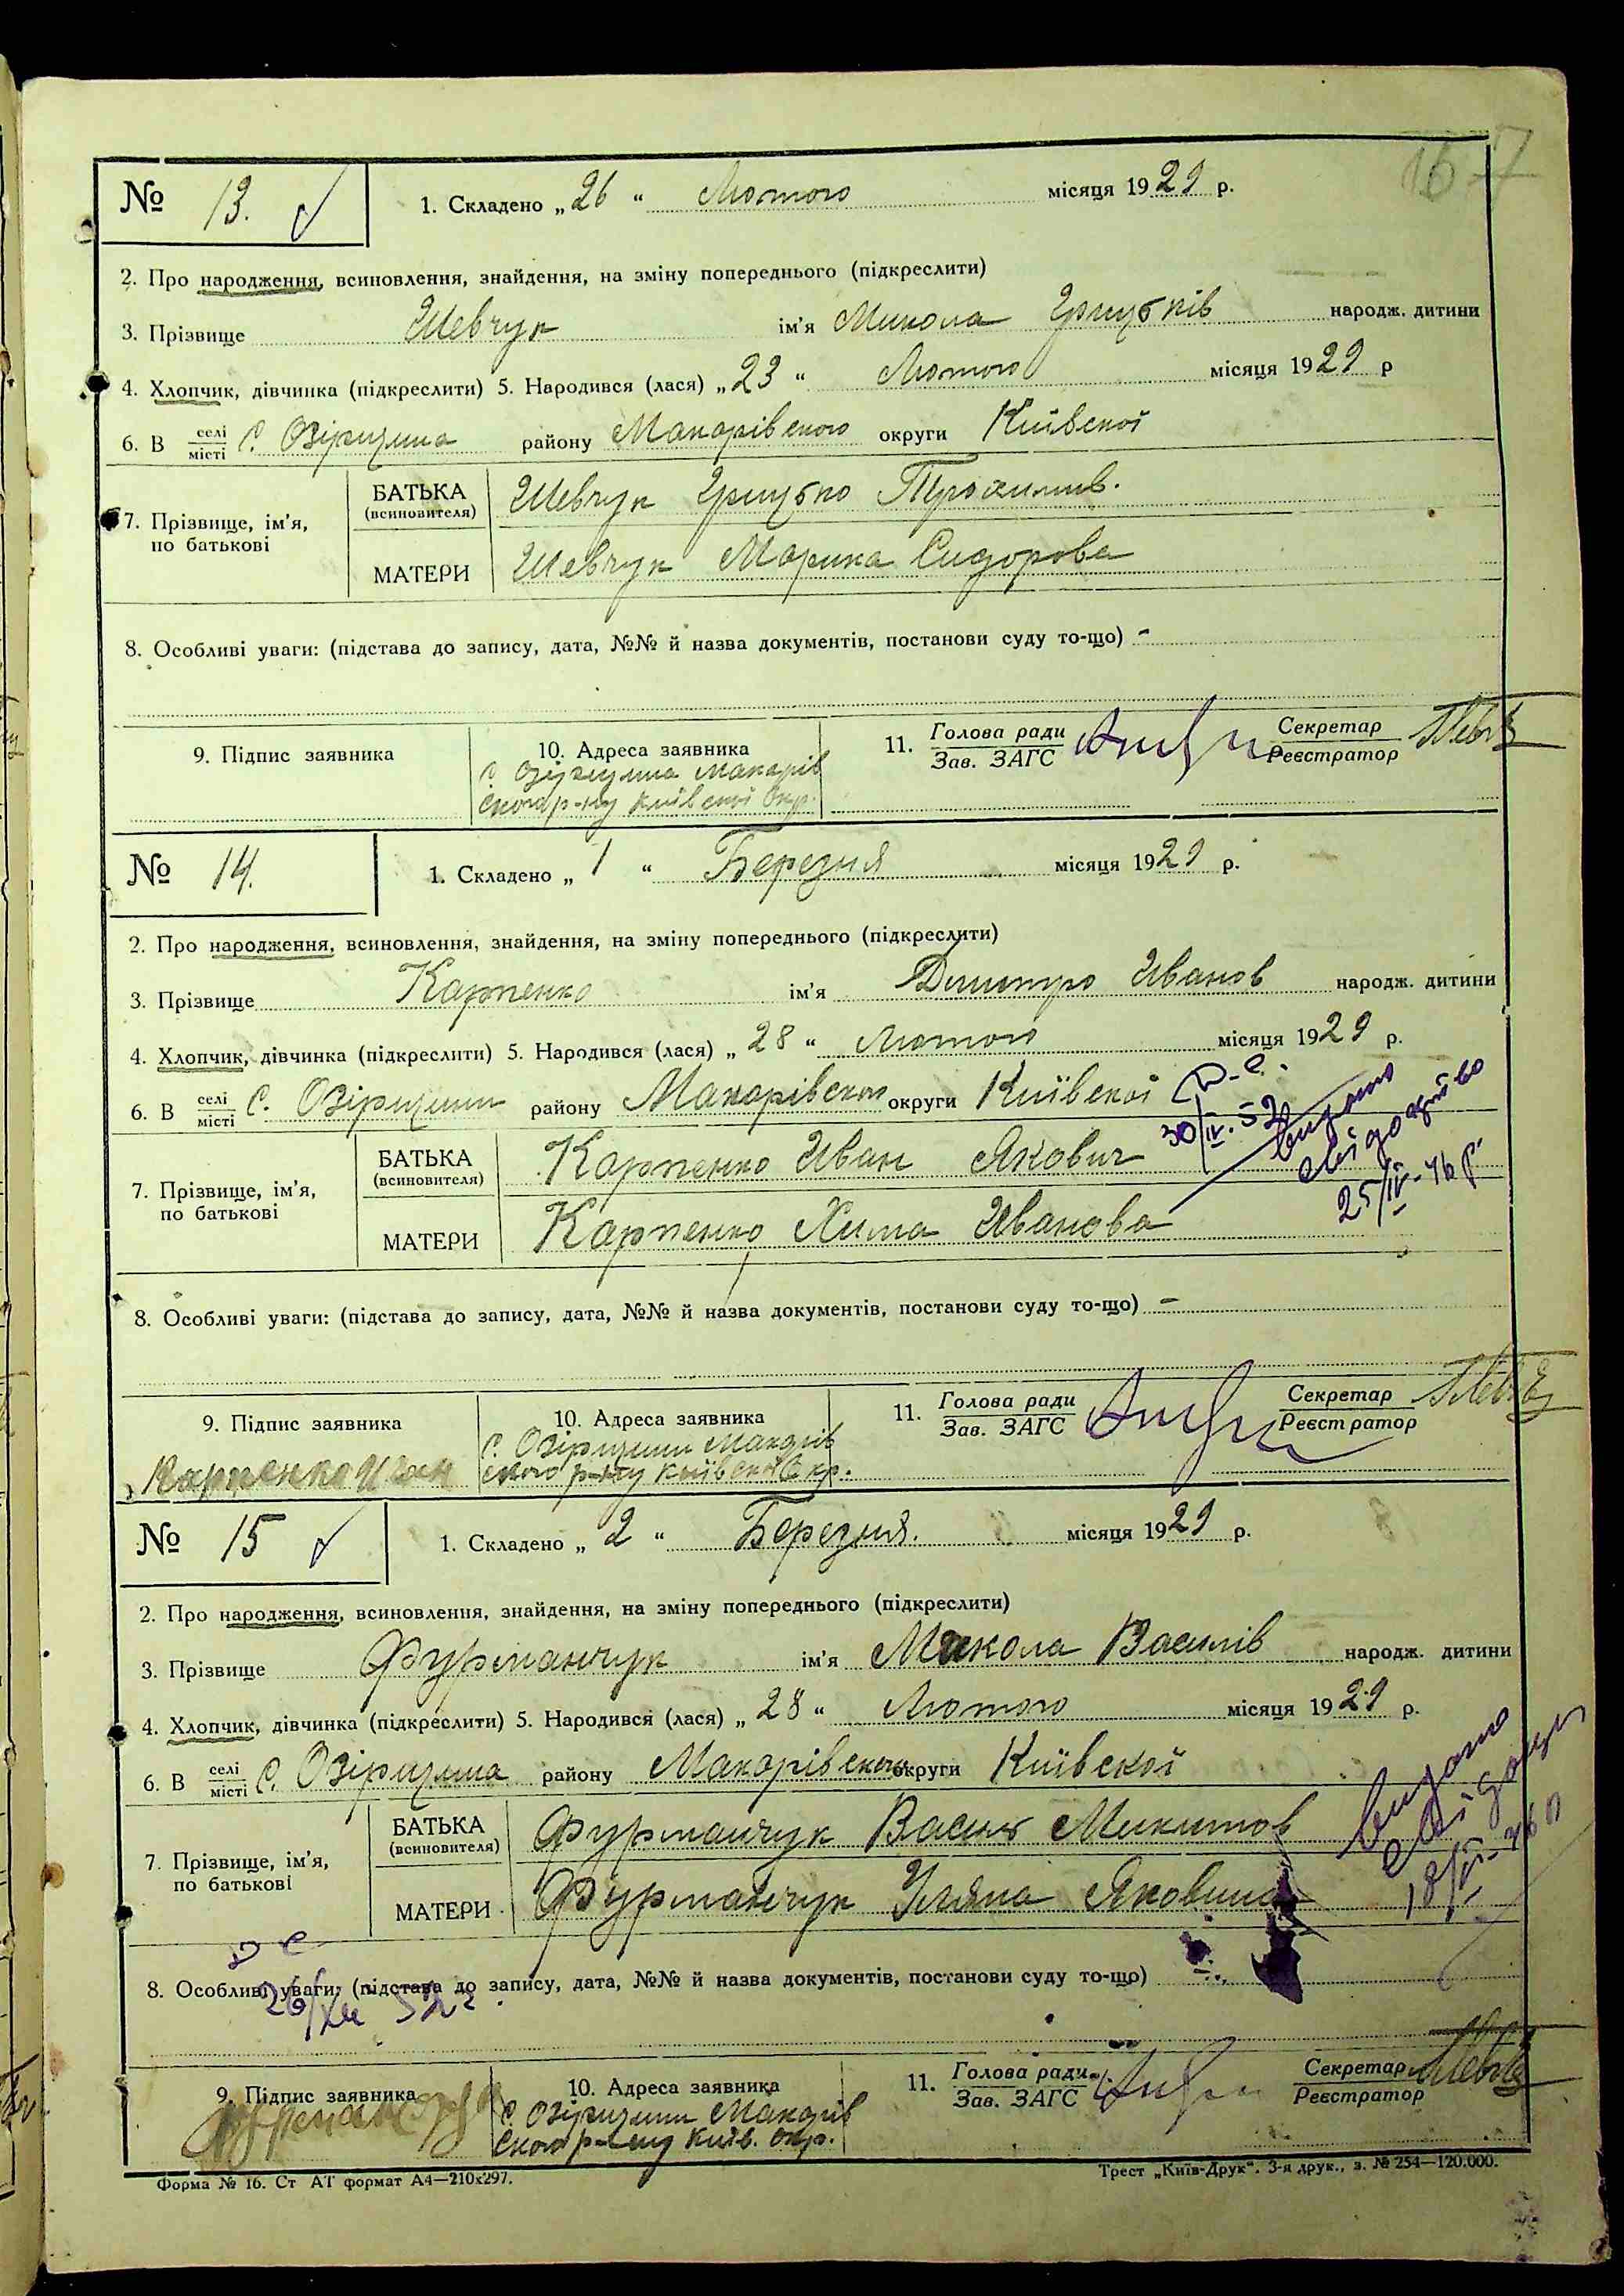 167
№ 13. 1. Складено „26“ Лютого місяця 1929 р.
2. Про народження, всиновлення, знайдення, на зміну попереднього (підкреслити)
3. Прізвище Шевчук ім'я Микола Грицьків народж. дитини
4. Хлопчик, дівчинка (підкреслити) 5. Народився (лася) „23“ Лютого місяця 1929 р
6. В селі місті С. Озірщина району Макарівского округи Київскої
7. Прізвище, ім'я, по батькові
БАТЬКА (всиновителя) Шевчук Грицько
МАТЕРИ Шевчук Марина Сидорова
8. Особливі уваги: (підстава до запису, дата, №№ й назва документів, постанови суду то-що) -
9. Підпис заявника 10. Адреса заявника 11. Голова ради Зав. ЗАГС Секретар Реєстратор
с Озірщина Макарів
ского р-ну Київскої Окр.
№ 14. 1. Складено „1“ Березня місяця 1929 р.
2. Про народження, всиновлення, знайдення, на зміну попереднього (підкреслити)
3. Прізвище Карпенко ім'я Димитро Иванов народж. дитини
4. Хлопчик, дівчинка (підкреслити) 5. Народився (лася) „28“ Лютого місяця 1929 р.
6. В селі місті С. Озірщини району Макарівского округи Київскої
30/IV.52
видано
свідоцтво
25/IV-46 р.
7. Прізвище, ім'я, по батькові
БАТЬКА (всиновителя) Карпенко Иван Якович
МАТЕРИ Карпенко Хима Иванова
8. Особливі уваги: (підстава до запису, дата, №№ й назва документів, постанови суду то-що) -
9. Підпис заявника 10. Адреса заявника 11. Голова ради Зав. ЗАГС Секретар Реєстратор
Карпенко Иван
с. Озірщини Макарів
ского р-ну Київскої Окр.
№ 15 1. Складено „2“ Березня. місяця 1929 р.
2. Про народження, всиновлення, знайдення, на зміну попереднього (підкреслити)
3. Прізвище Фурманчук ім'я Микола Василів народж. дитини
4. Хлопчик, дівчинка (підкреслити) 5. Народився (лася) „28“ Лютого місяця 1929 р.
6. В селі місті С. Озірщина району Макарівского округи Київской
видано
7. Прізвище, ім'я, по батькові
БАТЬКА (всиновителя) Фурманчук Василь Микитов
МАТЕРИ Фурманчук Уляна Яковина
8. Особливі уваги: (підстава до запису, дата, №№ й назва документів, постанови суду то-що)
9. Підпис заявника 10. Адреса заявника 11. Голова ради Зав. ЗАГС Секретар Реєстратор
с. Озірщини Макарів
ского р-ну Київ. окр.
Форма № 16. Ст АТ формат А4—210х297.
Трест „Київ-Друк“. 3-я друк., з. № 254—120.000.